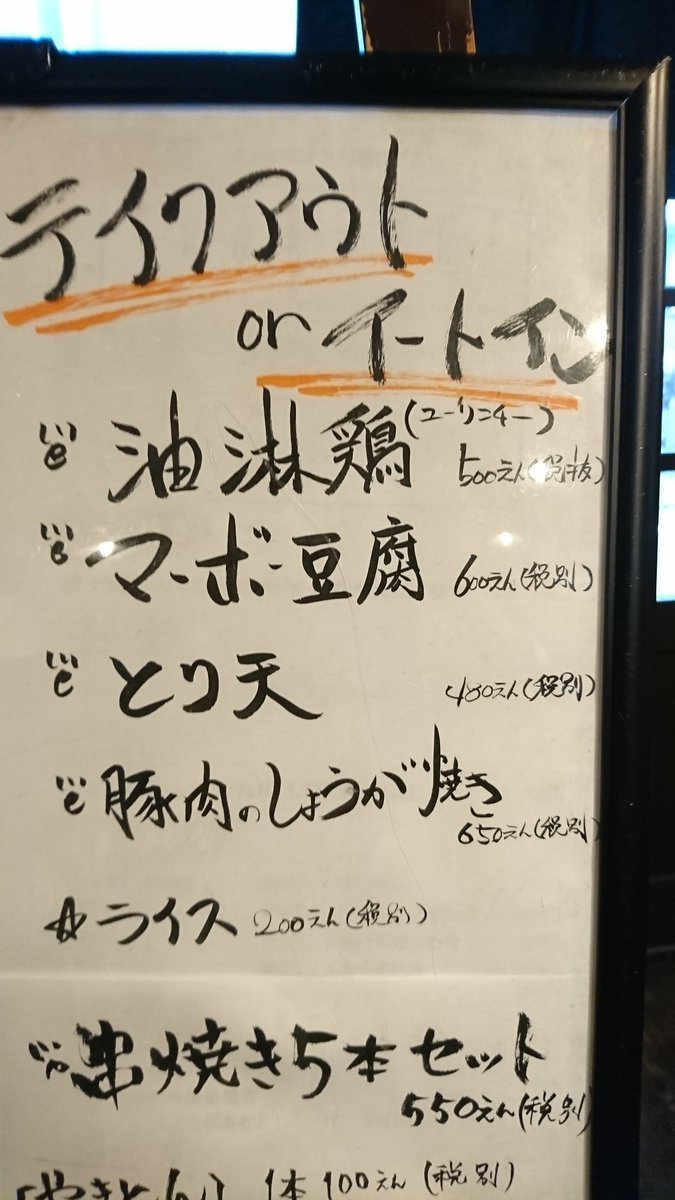 テイクアウト
or イートイン
油淋鶏(ユーリンチー) 500えん(税抜)
マーボー豆腐 600えん(税別)
とり天 480えん(税別)
豚肉のしょうが焼き 650えん(税別)
☆ライス 200えん(税別)
串焼き5本セット 550えん(税別)
[やきとん] 1本100えん(税別)